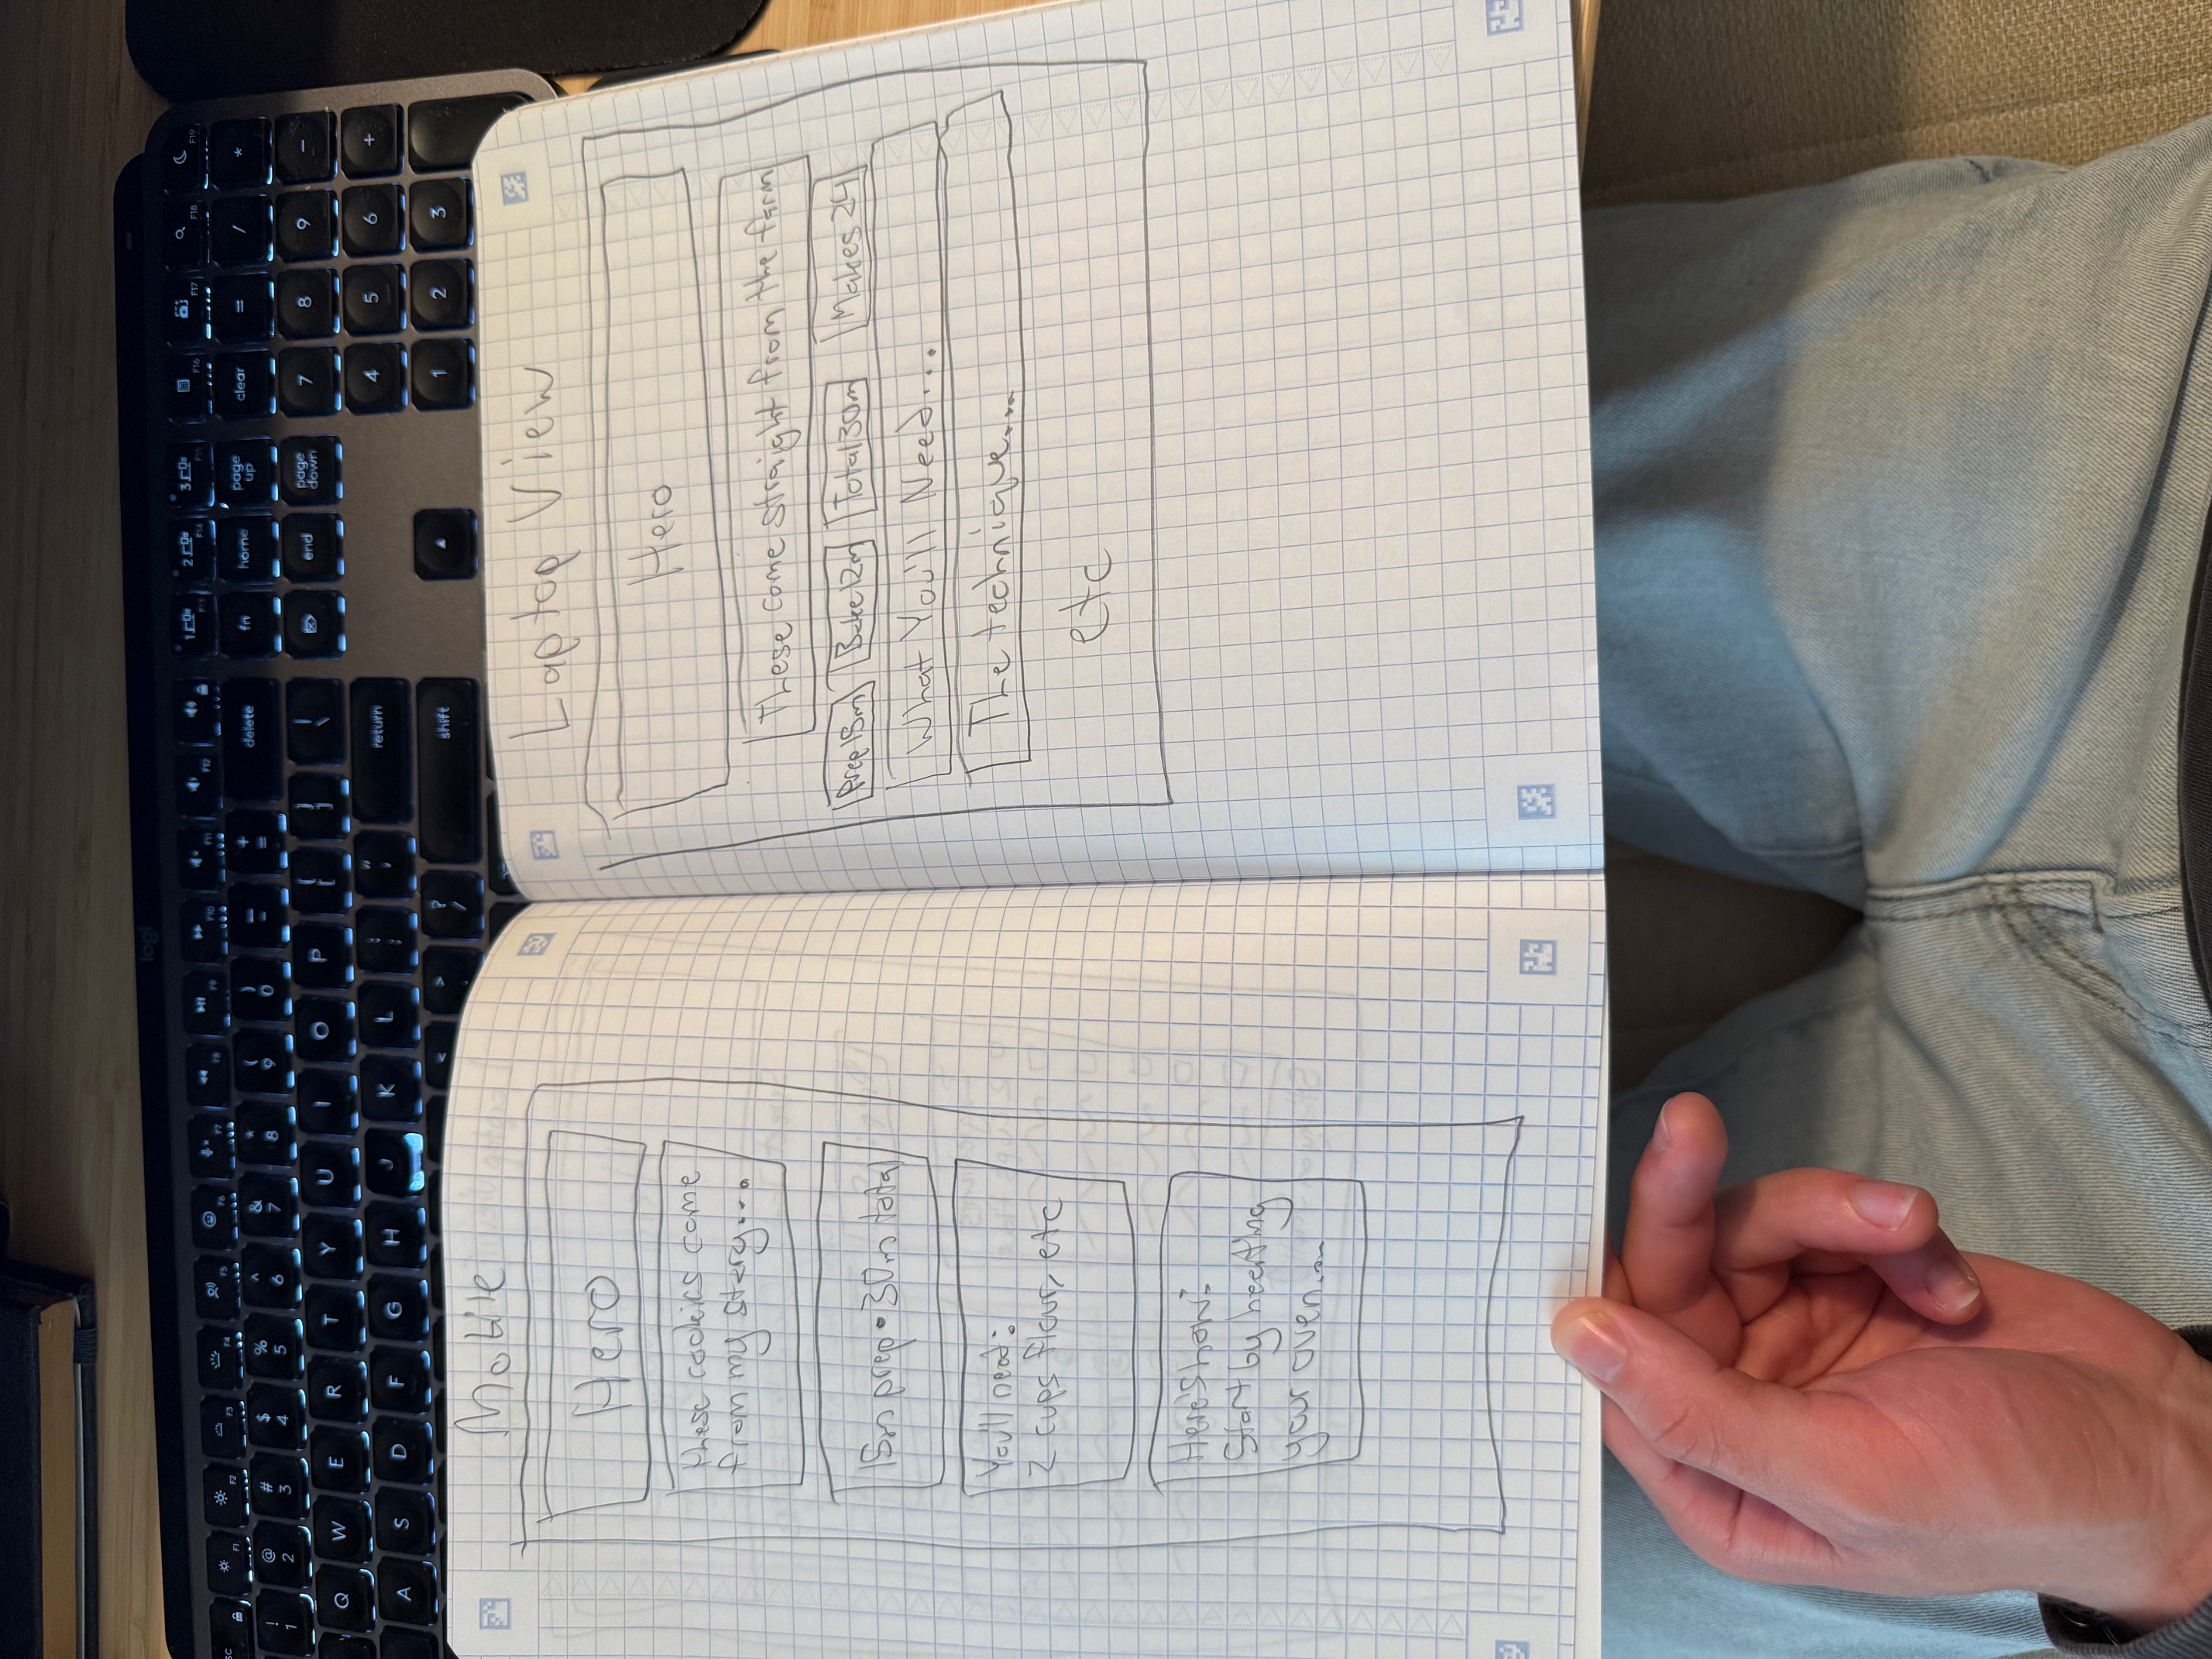 logi
esc F1 F2 F3 F4 F5 F6 F7 F8 F9 F10 F11 F12 1 F13 2 F14 3 F15 F16 F17 F18 F19
! 1 @ 2 # 3 $ 4 % 5 ^ 6 & 7 * 8 ( 9 ) 0 — - + = delete fn home page up clear = / *
Q W E R T Y U I O P { [ } ] | \ end page down 7 8 9 −
A S D F G H J K L : ; " ' return 4 5 6 +
< > ? / shift 1 2 3
Mobile
Hero
These cookies come
from my story...
15m prep • 30m total
You'll need:
2 cups flour, etc
Here's how:
Start by heating
your oven...
Laptop View
Hero
These come straight from the farm
Prep 15m Bake 12m Total 30m Makes 24
What You'll Need...
The technique...
etc